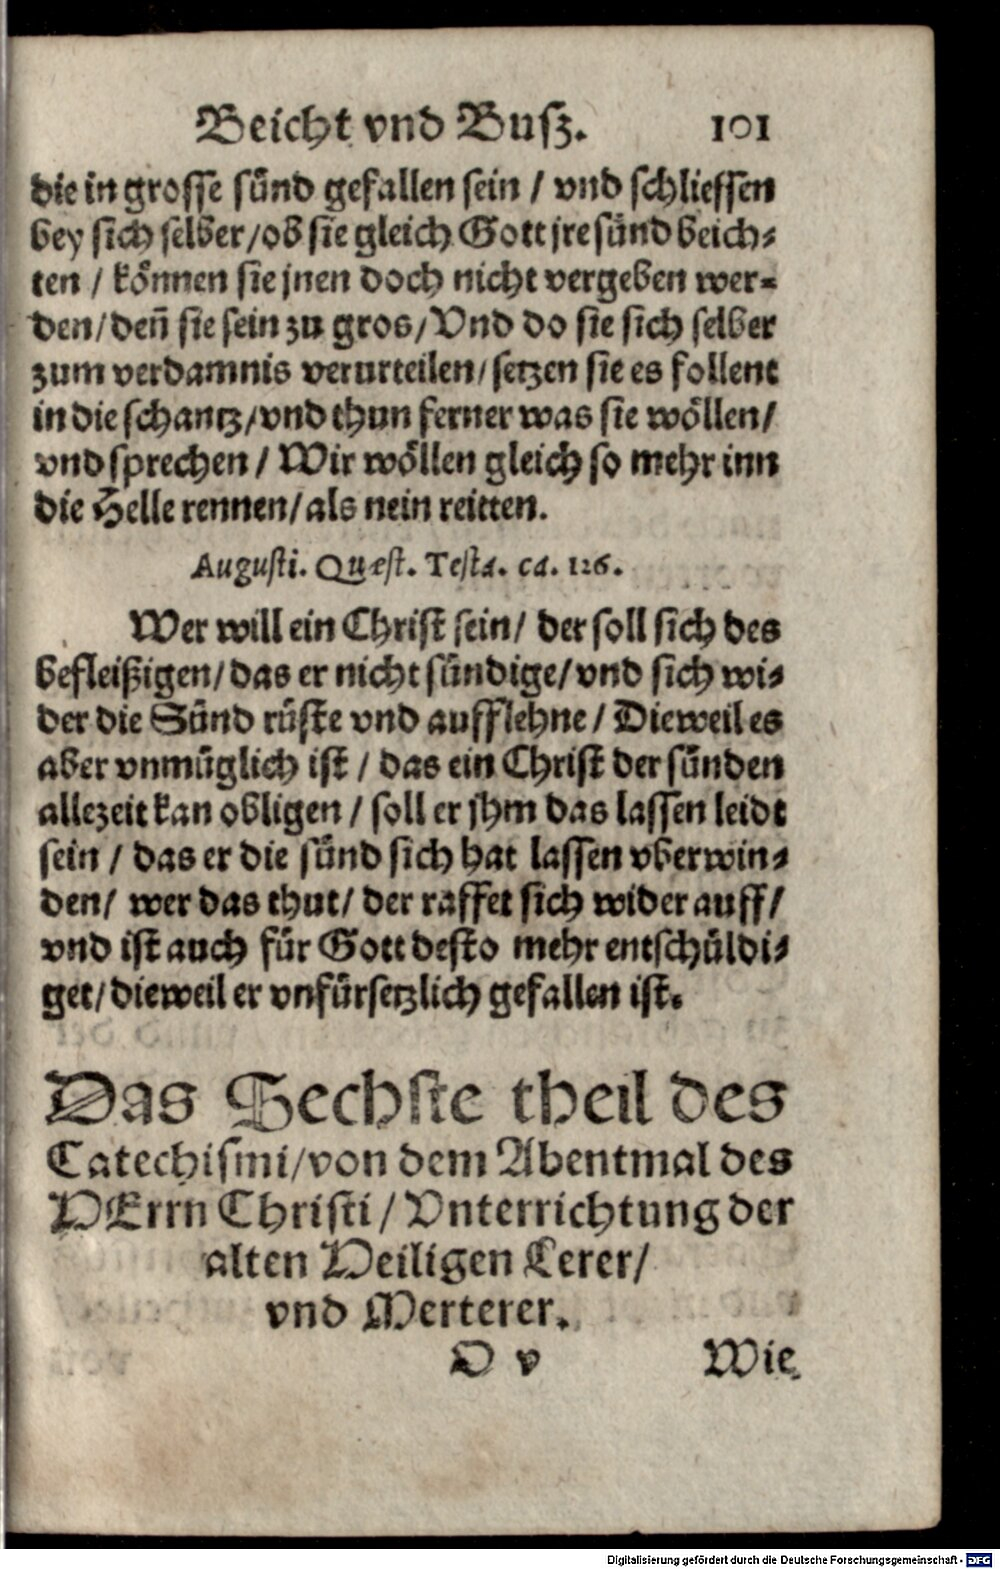 Beicht vnd Busz. 101
die in grosse sünd gefallen sein / vnd schliessen
bey sich selber/ob sie gleich Gott jre sünd beich-
ten / können sie jnen doch nicht vergeben wer-
den/deñ sie sein zu gros/Vnd do sie sich selber
zum verdamnis verurteilen/setzen sie es follent
in die schantz/vnd thun ferner was sie wöllen/
vnd sprechen / Wir wöllen gleich so mehr inn
die Helle rennen/als nein reitten.
Augusti. Quæst. Testa. ca. 126.
Wer will ein Christ sein/ der soll sich des
befleißigen/das er nicht sündige/vnd sich wi-
der die Sünd rüste vnd aufflehne / Dieweil es
aber vnmüglich ist / das ein Christ der sünden
allezeit kan obligen / soll er jhm das lassen leidt
sein / das er die sünd sich hat lassen vberwin-
den/ wer das thut/ der raffet sich wider auff/
vnd ist auch für Gott desto mehr entschüldi-
get/dieweil er vnfürsetzlich gefallen ist.
Das Sechste theil des
Catechismi/von dem Abentmal des
HErrn Christi / Vnterrichtung der
alten Heiligen Lerer/
vnd Merterer.
O v Wie
Digitalisierung gefördert durch die Deutsche Forschungsgemeinschaft - DFG